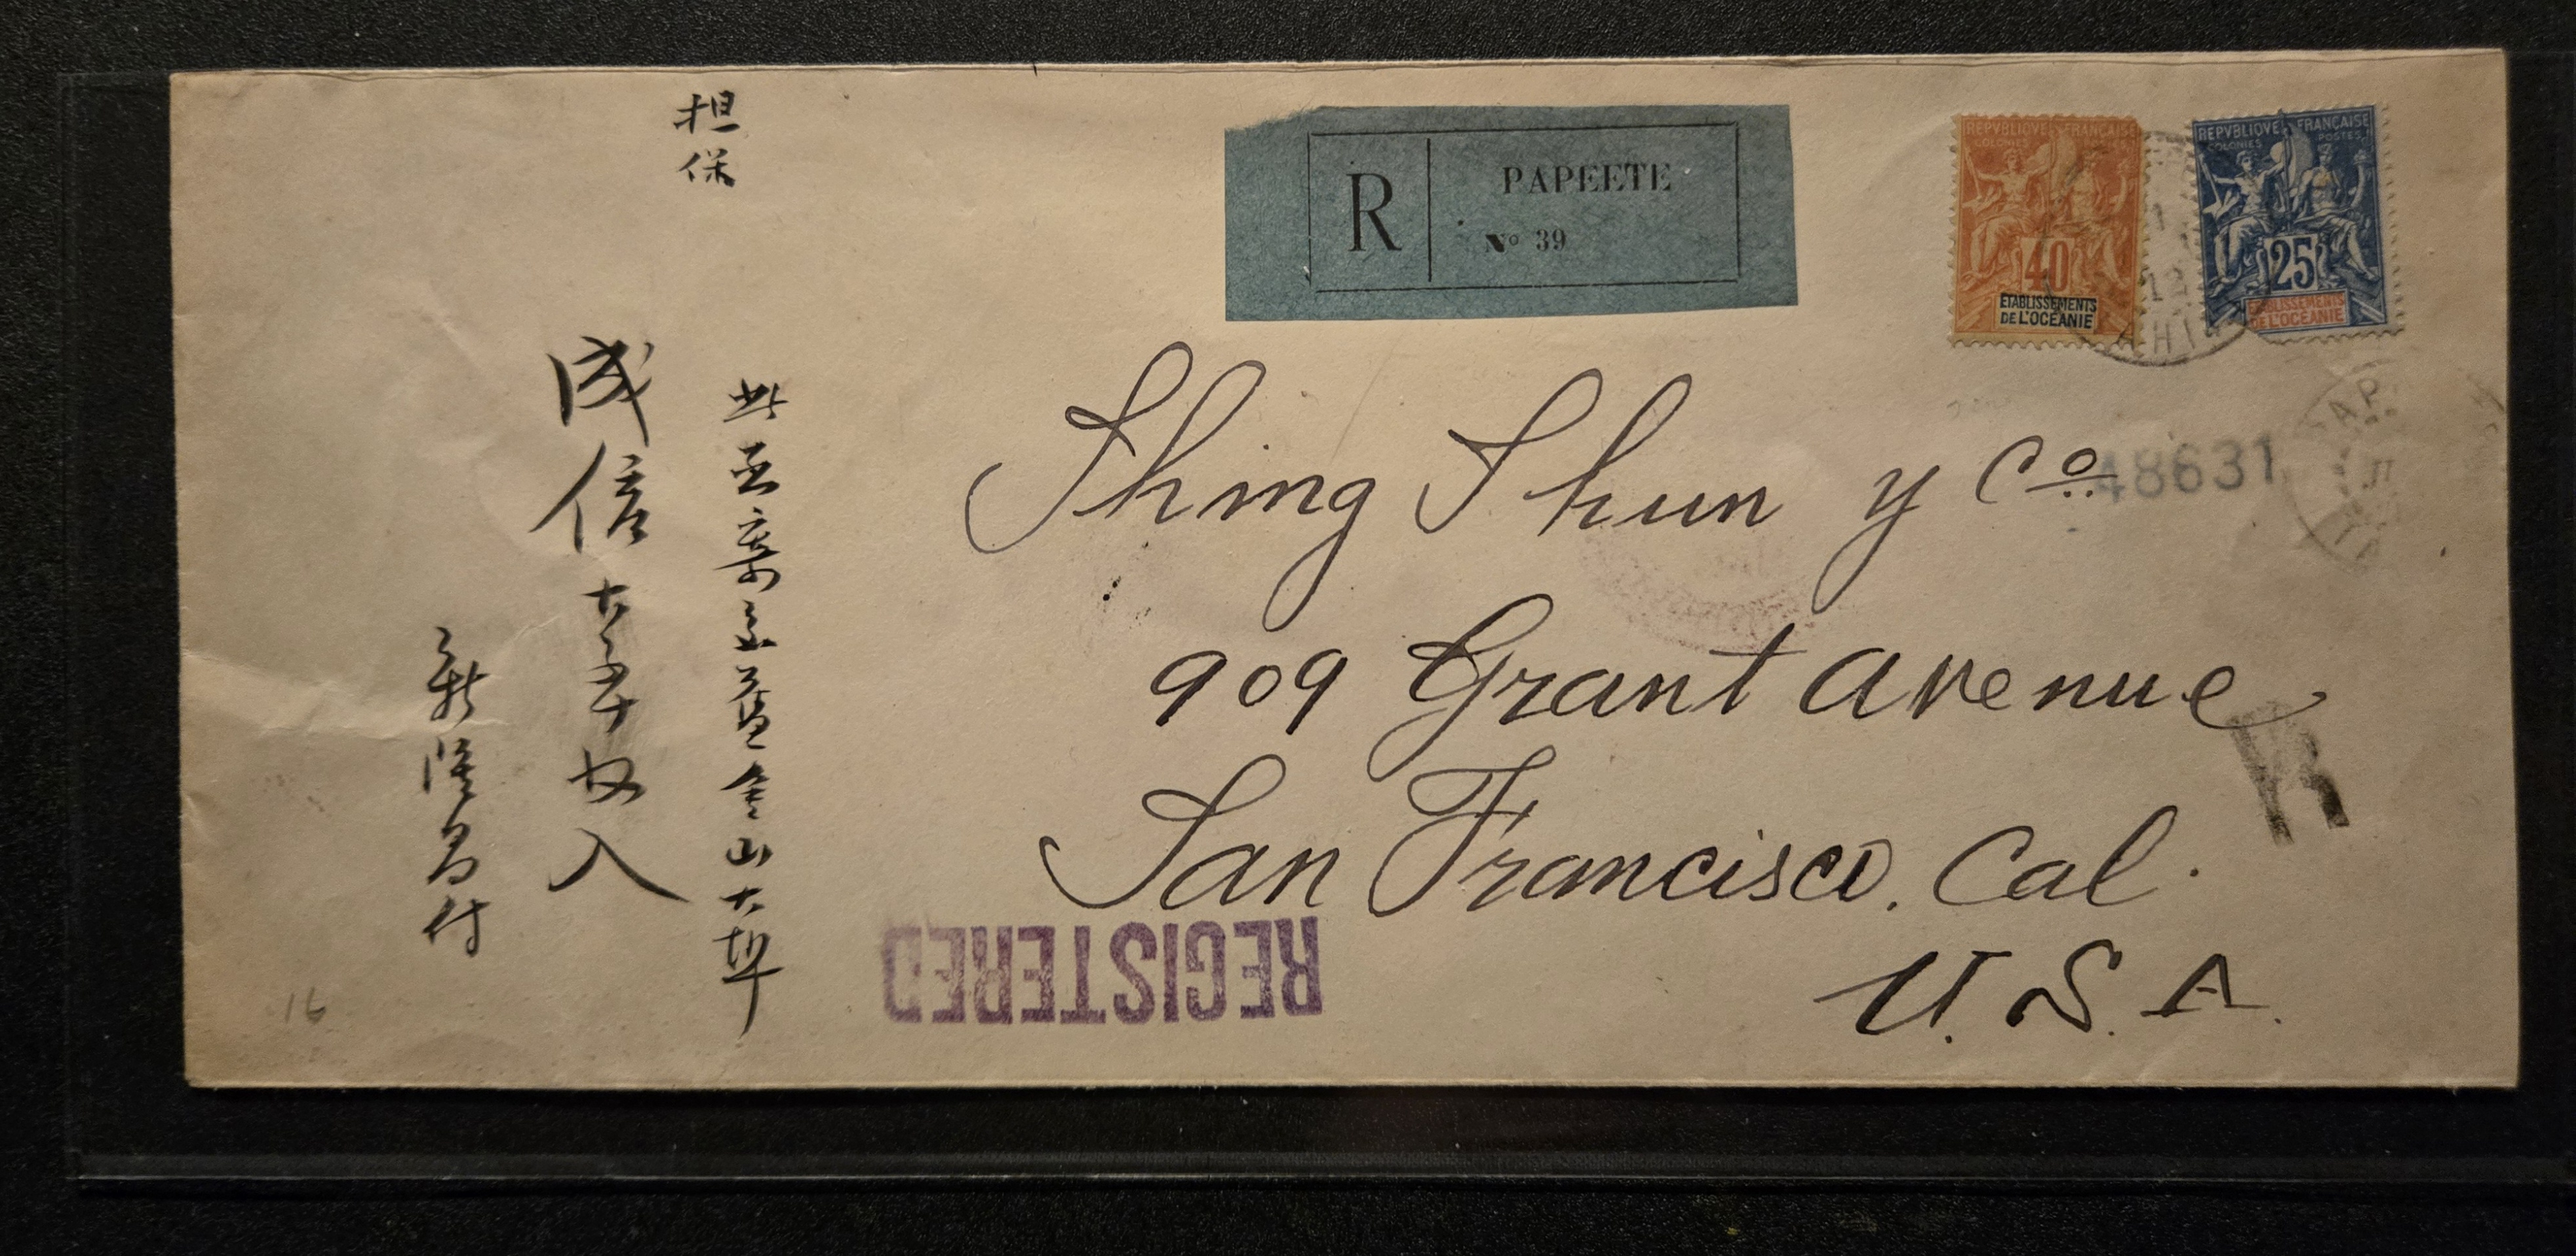 担保
此函寄至盖金山大埠
成信大寶號收入
新隆昌付
R
PAPEETE
No 39
REPVBLIQVE FRANÇAISE
COLONIES
40
ETABLISSEMENTS
DE L'OCÉANIE
REPVBLIQVE FRANÇAISE
COLONIES POSTES
25
ETABLISSEMENTS
DE L'OCÉANIE
Shing Shun y Co
48631
909 Grant Avenue
R
San Francisco. Cal.
REGISTERED
U.S.A.
16